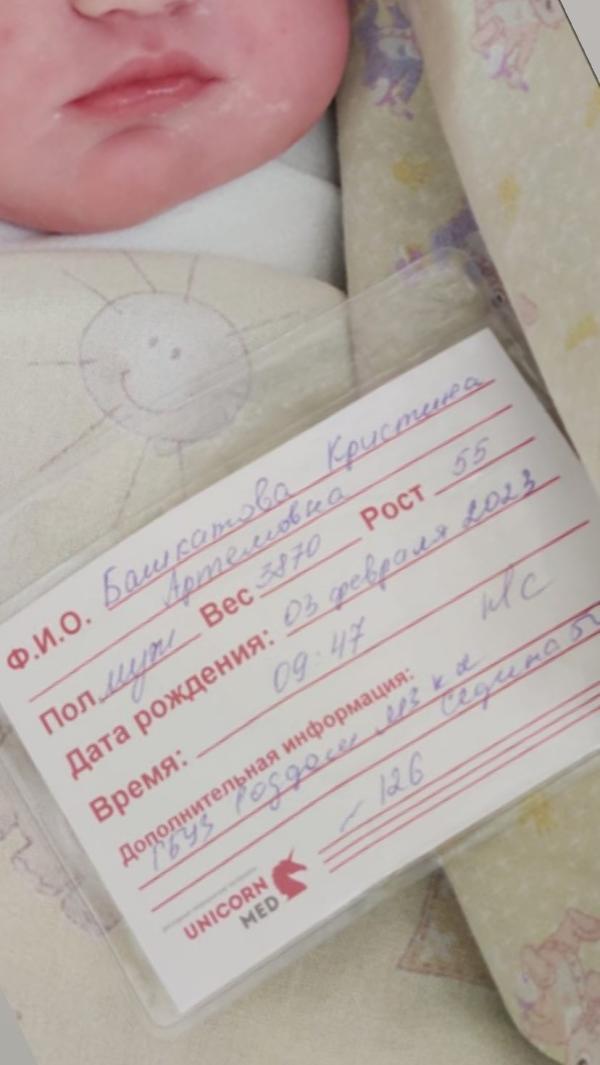 Ф.И.О. Башкатова Кристина
Артемовна
Пол муж Вес 3870 Рост 55
Дата рождения: 03 февраля 2023
Время: 09:47
Дополнительная информация:
ГБУЗ роддом МЗ КК
126
UNICORN
MED